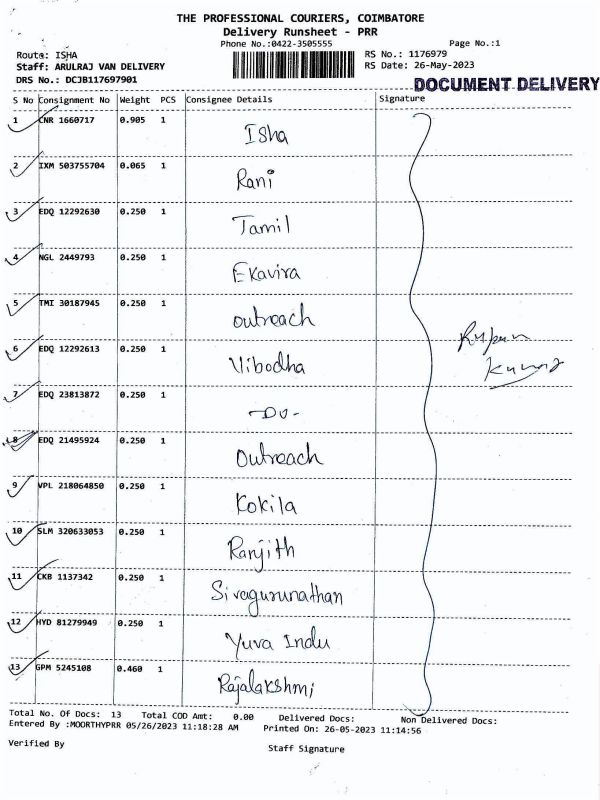 THE PROFESSIONAL COURIERS, COIMBATORE
Delivery Runsheet - PRR
Phone No.:0422-3505555 Page No.:1
Route: ISHA RS No.: 1176979
Staff: ARULRAJ VAN DELIVERY RS Date: 26-May-2023
DRS No.: DCJB117697901
DOCUMENT DELIVERY
S No Consignment No Weight PCS Consignee Details Signature
1 CNR 1660717 0.905 1 Isha
2 IXM 503755704 0.065 1 Rani
3 EDQ 12292630 0.250 1 Tamil
4 NGL 2449793 0.250 1 Ekavira
5 TMI 30187945 0.250 1 outreach
6 EDQ 12292613 0.250 1 Vibodha
Kumar
7 EDQ 23813872 0.250 1 -Do-
8 EDQ 21495924 0.250 1 Outreach
9 VPL 218064850 0.250 1 Kokila
10 SLM 320633053 0.250 1 Ranjith
11 CKB 1137342 0.250 1 Sivagurunathan
12 HYD 81279949 0.250 1 Yuva Indu
13 GPM 5245108 0.460 1 Rajalakshmi
Total No. Of Docs: 13 Total COD Amt: 0.00 Delivered Docs: Non Delivered Docs:
Entered By :MOORTHYPRR 05/26/2023 11:18:28 AM Printed On: 26-05-2023 11:14:56
Verified By Staff Signature